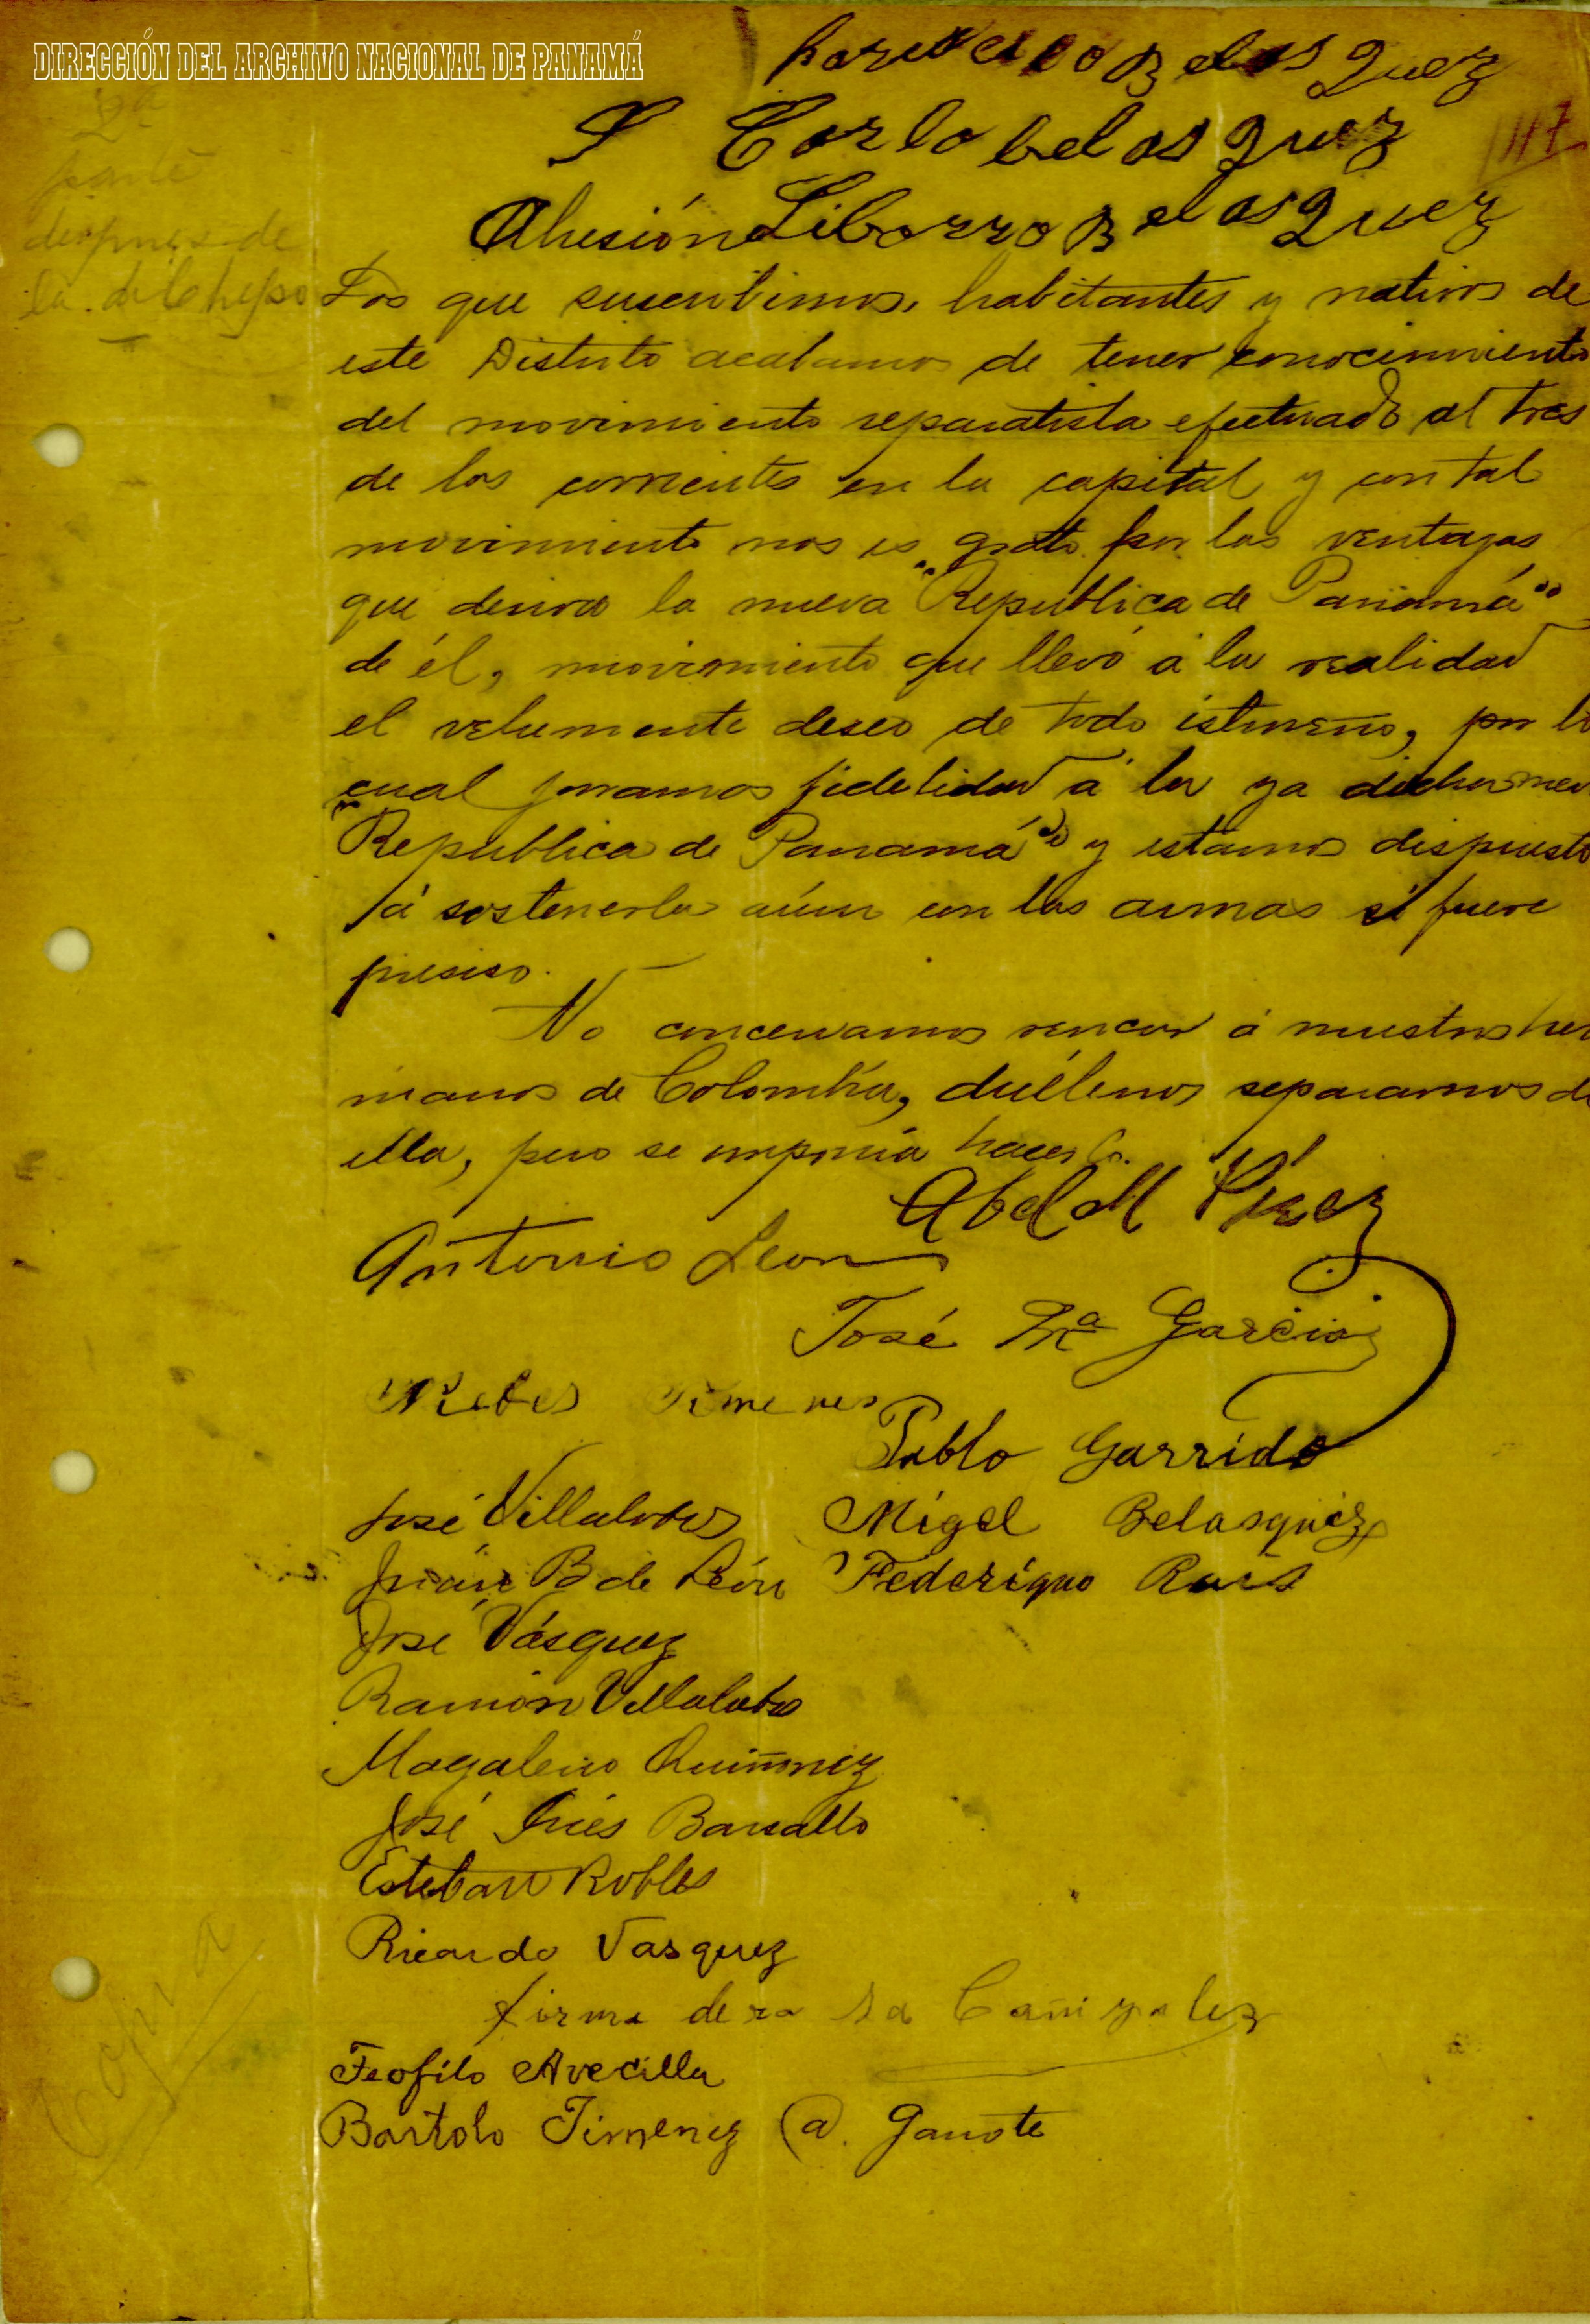 DIRECCIÓN DEL ARCHIVO NACIONAL DE PANAMÁ
Belasquez
117
Carlo belasquez
Ahesión Liborro Belasquez
2ª
parte
despues de
la de Chepo
Los que suscribimos, habitantes y nativos de
este Distrito acabamos de tener conocimiento
del movimiento separatista efectuado al tres
de los corrientes en la capital y con tal
movimiento nos es grato por las ventajas
que deriva la nueva "Republica de Panamá"
de él, movimiento que llevó á la realidad
el velumente deseo de todo istmeño, por lo
cual juramos fidelidad á la ya dicha
"Republica de Panamá" y estamos dispuesto
á sostenerla aún con las armas si fuere
presiso.
No concervamos rencor á nuestros her
manos de Colombia, duélenos separarnos de
ella, pero se imponia hacerlo.
Abel M Pérez
Antonio Leon
José Mª Garcia
Pablo Garrido
José Villalobos Migel Belasquez
Juán B de León Federiquo Ruis
José Vásquez
Ramón Villalobos
Magaleno Quiñonez
José Inés Barsallo
Esteban Robles
Ricardo Vasquez
firma de Cañizalez
Teofilo Avecilla
Bartolo Jimenez (a. Ganote
Copia